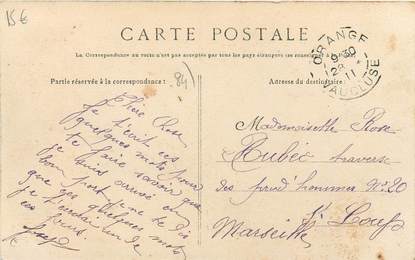 15€
CARTE POSTALE
La Correspondance au recto n'est pas acceptée par tous les pays étrangers
Partie réservée à la correspondance:
Adresse du destinataire:
(84)
ORANGE
9 30
28
11
VAUCLUSE
Chère Rose
Je t'écrit ces
quelques mots pour
te faire savoir que
je suis arrivé en
bon port je ne te dis
que ces quelques mots
je t'
ces jours.
Mademoiselle Rose
traverse
des prud'hommes N° 20
St Loup
Marseille